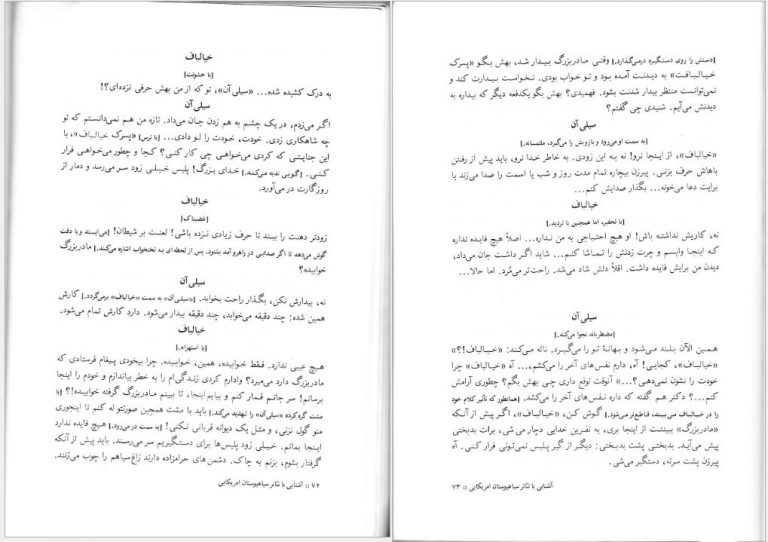 خیالباف
[با خشونت]
به درک کشیده شده... «سیلی آن»، تو که از من بهش حرفی نزده‌ای؟!
سیلی آن
اگر می‌زدم، در یک چشم به هم زدن جان می‌داد. تازه من هم نمی‌دانستم که تو
چه شاهکاری زدی. خودت، خودت را لو دادی... [با ترس] «پسرک خیالباف»، با
این جنایتی که کردی می‌خواهی چی کار کنی؟ کجا و چطور می‌خواهی فرار
کنی. [گویی ندبه می‌کند.] خدای بزرگ! پلیس خیلی زود سر می‌رسد و دمار از
روزگارت در می‌آورد.
خیالباف
[غضبناک]
زودتر دهنت را ببند تا حرف زیادی نزده باشی! لعنت بر شیطان! [می‌ایستد و با دقت
گوش می‌دهد تا اگر صدایی در راهرو آمد بشنود. پس از لحظه‌ای به تختخواب اشاره می‌کند.] مادربزرگ
خوابیده؟
سیلی آن
نه، بیدارش نکن، بگذار راحت بخوابد. [«سیلی آن» به سمت «خیالباف» برمی‌گردد.] کارش
همین شده: چند دقیقه می‌خوابد، چند دقیقه بیدار می‌شود. دارد کارش تمام می‌شود.
خیالباف
[با استهزاء.]
هیچ عیبی ندارد. فقط خوابیده، همین، خوابیده. چرا بیخودی پیغام فرستادی که
مادربزرگ دارد می‌میرد؟ وادارم کردی زندگی‌ام را به خطر بیاندازم و خودم را اینجا
برسانم! سر جانم قمار کنم و بیایم اینجا، تا ببینم مادربزرگ گرفته خوابیده!؟ [با
مشت گره کرده «سیلی آن» را تهدید می‌کند.] باید با مشت همچین صورتتو له کنم تا اینجوری
منو گول نزنی، و مثل یک دیوانه قربانی نکنی! [به سمت در می‌رود.] هیچ فایده ندارد
اینجا بمانم. خیلی زود پلیس‌ها برای دستگیریم سر می‌رسند. باید پیش از آنکه
گرفتار بشوم، بزنم به چاک. دشمن‌های حرامزاده دارند زاغ‌سیاهم را چوب می‌زنند.
۷۲ □ آشنایی با تئاتر سیاهپوستان امریکایی
[دستش را روی دستگیره در می‌گذارد.] وقتی مادربزرگ بیدار شد، بهش بگو «پسرک
خیالبافت» به دیدنت آمده بود و تو خواب بودی. نخواست بیدارت کند و
نمی‌توانست منتظر بیدار شدنت بشود. فهمیدی؟ بهش بگو یکدفعه دیگر که بیداره به
دیدنش می‌آیم. شنیدی چی گفتم؟
سیلی آن
[به سمت او می‌رود و بازویش را می‌گیرد، ملتمسانه.]
«خیالباف»، از اینجا نرو! نه به این زودی. به خاطر خدا نرو، باید پیش از رفتن
باهاش حرف بزنی. پیرزن بیچاره تمام مدت روز و شب یا اسمت را صدا می‌زند یا
برایت دعا می‌خونه... بگذار صدایش کنم...
خیالباف
[با تحقیر، اما همچنین با تردید.]
نه، کاریش نداشته باش! او هیچ احتیاجی به من نداره... اصلاً هیچ فایده نداره
که اینجا وایسم و چرت زدنش را تماشا کنم... شاید اگر داشت جان می‌داد،
دیدن من برایش فایده داشت. اقلاً دلش شاد می‌شد. راحت‌تر می‌مُرد. اما حالا...
سیلی آن
[مضطربانه نجوا می‌کند.]
همین الآن بلند می‌شود و بهانهٔ تو را می‌گیرد. ناله می‌کند: «خیالباف!؟»
«خیالباف»، کجایی! آه، دارم نفس‌های آخر را می‌کشم... آه «خیالباف» چرا
خودت را نشون نمی‌دهی؟...» آنوقت توقع داری چی بهش بگم؟ چطوری آرامش
کنم؟... دکتر هم گفته که داره نفس‌های آخر را می‌کشد. [همانطور که تأثیر کلام خود
را در خیالباف می‌بیند، قاطع‌تر می‌شود.] گوش کن، «خیالباف»، اگر پیش از آنکه
«مادربزرگ» ببیندت از اینجا بری، به نفرین خدایی دچار می‌شی، برات بدبختی
پیش می‌آید. بدبختی پشت بدبختی: دیگر از گیر پلیس نمی‌تونی فرار کنی. آه
پیرزن پشت سرته، دستگیر می‌شی.
آشنایی با تئاتر سیاهپوستان امریکایی □ ۷۳